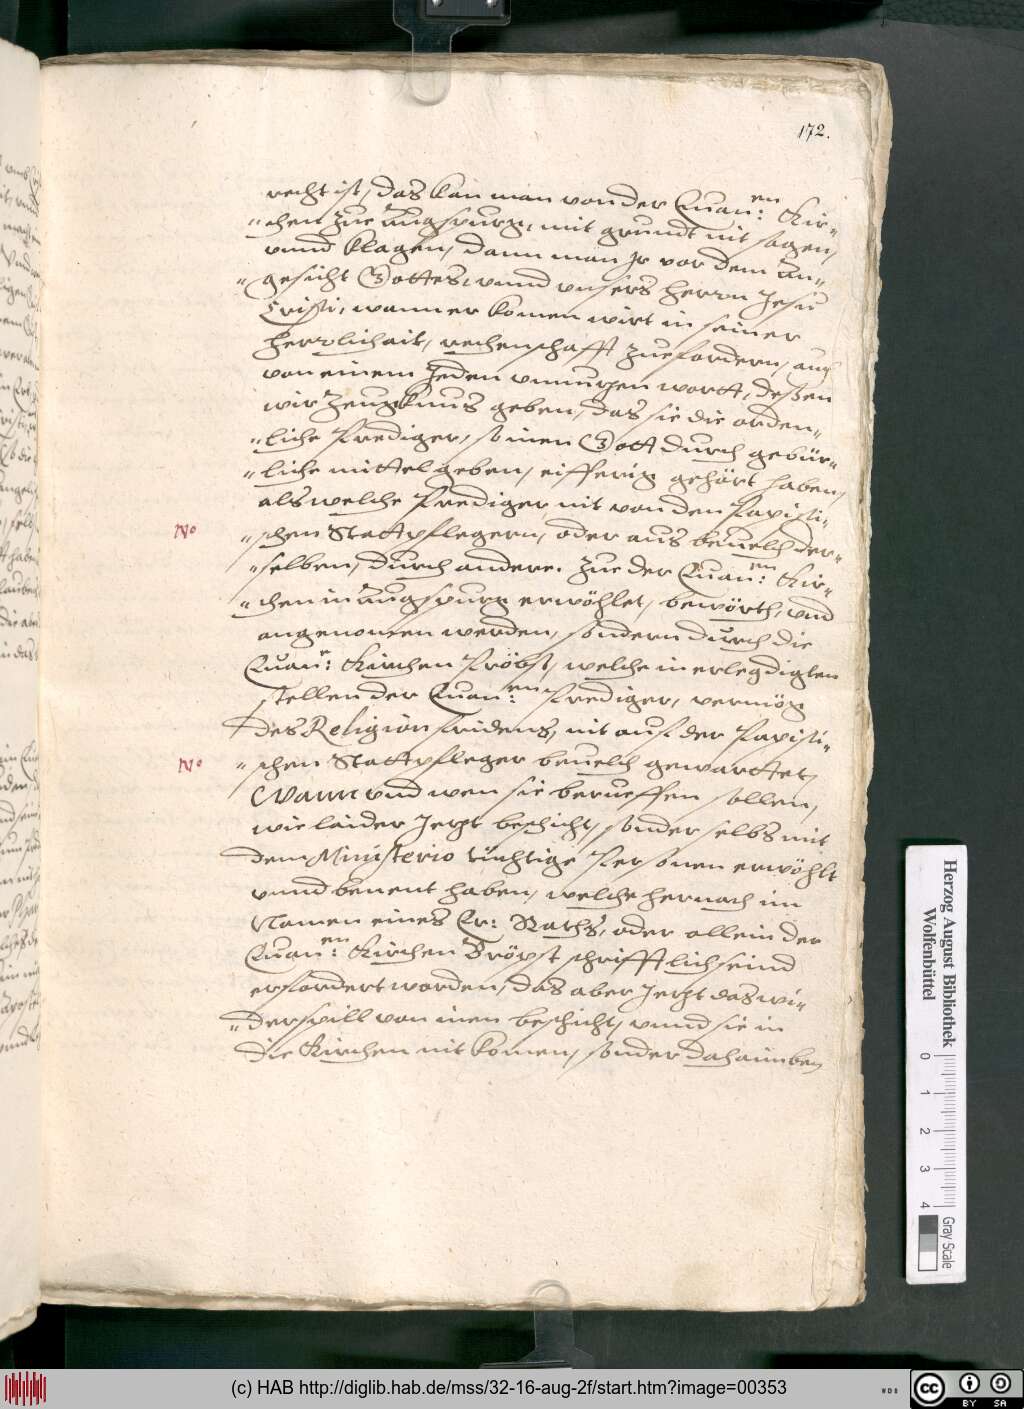 172.
recht ist, das kan man von der Euan:en Kir-
"chen zue Augspurg, mit grundt nit sagen,
vnnd klagen, dann man Jr vor dem An-
"gesicht Gottes, vnnd vnsers Herrn Jesu
Cristi, wann er komen wirt in seiner
Herrlichait, rechenschafft zuefordern, auch
von einem Jeden vnnuzen wortt, deßen
wir Zeugknus geben, das sie die orden-
"liche Prediger, so inen Gott durch gebür-
"liche mittel geben, eifferig gehört haben,
als welche Prediger nit von den Papisti-
No "schen Stattpflegern, oder aus beuelch der-
"selben, durch andere. zue der Euan:en Kir-
"chen in Augspurg erwöhlet, bewörth, vnd
angenomen werden, sondern durch die
Euan:e Kirchen Pröbst, welche in erlegdigten
stellen der Euan:en Prediger, vermög
des Religion fridens, nit auf der Papisti-
No "schen Stattpfleger beuelch gewarttet,
Wann vnd wen sie berueffen sollen,
wie laider Jetzt beschicht, sonder selbs mit
dem Ministerio tüchtige Personen erwöhlt
vnnd benent haben, welche hernach im
Namen eines Er: Raths, oder allein der
Euan:en Kirchen Pröpst schrifftlich seind
erfordert worden, das aber Jetzt das wi-
"derspill von inen beschicht, vnnd sie in
die Kirchen nit komen, sonder dahaimben
Herzog August Bibliothek
Wolfenbüttel
0 1 2 3 4
Gray Scale
(c) HAB http://diglib.hab.de/mss/32-16-aug-2f/start.htm?image=00353
WDB
cc BY SA